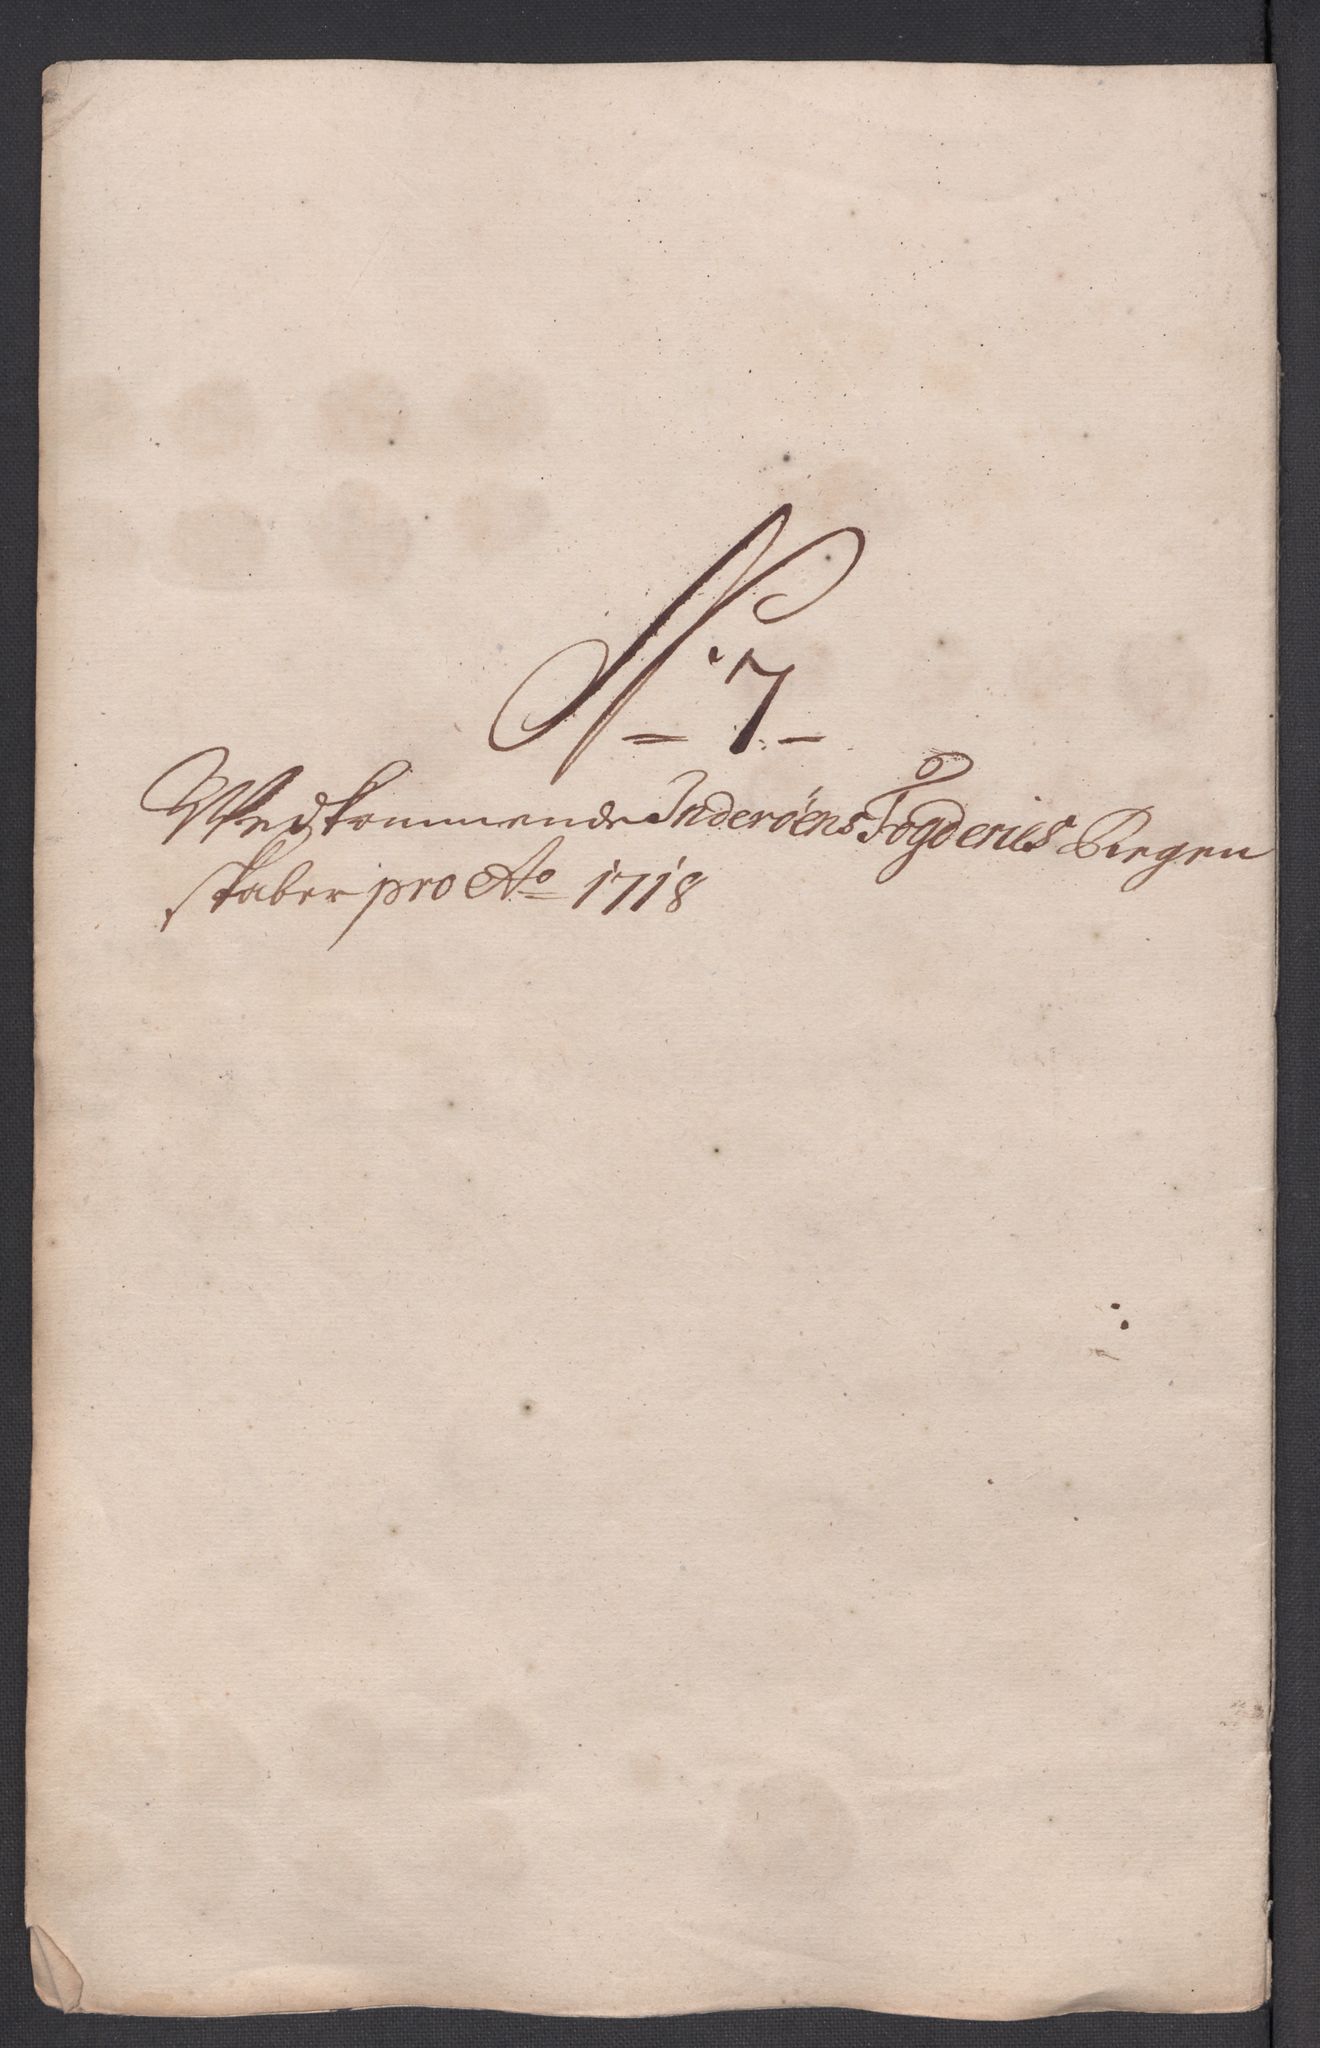 N. 7
Vedkommende Inderöens Fogderies Regen
skaber pro Ao 1718